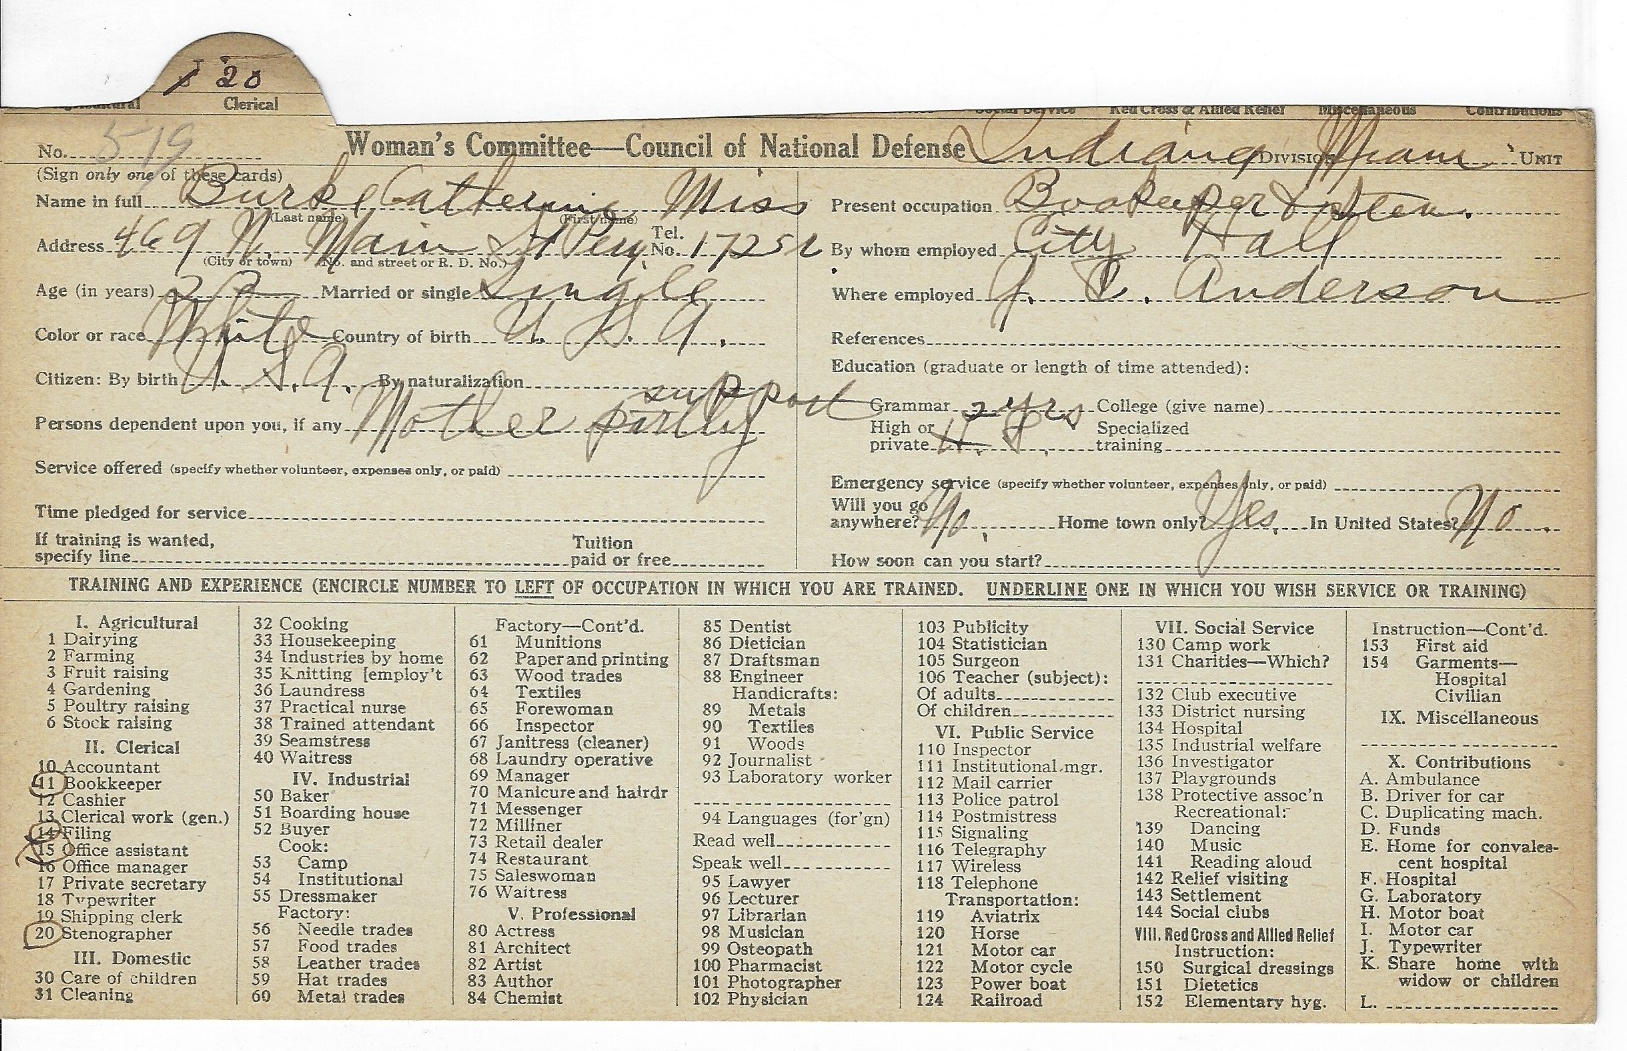 20
Clerical
Social Service Red Cross & Allied Relief Miscellaneous Contributions
No. 519 Woman's Committee—Council of National Defense Indiana Division Miami Unit
(Sign only one of these cards)
Name in full Burke Catherine Miss
(Last name) (First name)
Address 469 N. Main St Peru Tel. No. 1725
(City or town) (No. and street or R. D. No.)
Age (in years) Married or single Single
Color or race White Country of birth U. S. A.
Citizen: By birth U. S. A. By naturalization
Persons dependent upon you, if any Mother partly support
Service offered (specify whether volunteer, expenses only, or paid)
Time pledged for service
If training is wanted, specify line Tuition paid or free
Present occupation Bookeeper & Sten.
By whom employed City Hall
Where employed J. C. Anderson
References
Education (graduate or length of time attended):
Grammar 2 yrs College (give name)
High or private H. S. Specialized training
Emergency service (specify whether volunteer, expenses only, or paid)
Will you go anywhere? No. Home town only? Yes. In United States? No.
How soon can you start?
TRAINING AND EXPERIENCE (ENCIRCLE NUMBER TO LEFT OF OCCUPATION IN WHICH YOU ARE TRAINED. UNDERLINE ONE IN WHICH YOU WISH SERVICE OR TRAINING)
I. Agricultural
1 Dairying
2 Farming
3 Fruit raising
4 Gardening
5 Poultry raising
6 Stock raising
II. Clerical
10 Accountant
11 Bookkeeper
12 Cashier
13 Clerical work (gen.)
14 Filing
15 Office assistant
16 Office manager
17 Private secretary
18 Typewriter
19 Shipping clerk
20 Stenographer
III. Domestic
30 Care of children
31 Cleaning
32 Cooking
33 Housekeeping
34 Industries by home
35 Knitting [employ't
36 Laundress
37 Practical nurse
38 Trained attendant
39 Seamstress
40 Waitress
IV. Industrial
50 Baker
51 Boarding house
52 Buyer
Cook:
53 Camp
54 Institutional
55 Dressmaker
Factory:
56 Needle trades
57 Food trades
58 Leather trades
59 Hat trades
60 Metal trades
Factory—Cont'd.
61 Munitions
62 Paper and printing
63 Wood trades
64 Textiles
65 Forewoman
66 Inspector
67 Janitress (cleaner)
68 Laundry operative
69 Manager
70 Manicure and hairdr
71 Messenger
72 Milliner
73 Retail dealer
74 Restaurant
75 Saleswoman
76 Waitress
V. Professional
80 Actress
81 Architect
82 Artist
83 Author
84 Chemist
85 Dentist
86 Dietician
87 Draftsman
88 Engineer
Handicrafts:
89 Metals
90 Textiles
91 Woods
92 Journalist
93 Laboratory worker
94 Languages (for'gn)
Read well
Speak well
95 Lawyer
96 Lecturer
97 Librarian
98 Musician
99 Osteopath
100 Pharmacist
101 Photographer
102 Physician
103 Publicity
104 Statistician
105 Surgeon
106 Teacher (subject):
Of adults
Of children
VI. Public Service
110 Inspector
111 Institutional mgr.
112 Mail carrier
113 Police patrol
114 Postmistress
115 Signaling
116 Telegraphy
117 Wireless
118 Telephone
Transportation:
119 Aviatrix
120 Horse
121 Motor car
122 Motor cycle
123 Power boat
124 Railroad
VII. Social Service
130 Camp work
131 Charities—Which?
132 Club executive
133 District nursing
134 Hospital
135 Industrial welfare
136 Investigator
137 Playgrounds
138 Protective assoc'n
Recreational:
139 Dancing
140 Music
141 Reading aloud
142 Relief visiting
143 Settlement
144 Social clubs
VIII. Red Cross and Allied Relief
Instruction:
150 Surgical dressings
151 Dietetics
152 Elementary hyg.
Instruction—Cont'd.
153 First aid
154 Garments—
Hospital
Civilian
IX. Miscellaneous
X. Contributions
A. Ambulance
B. Driver for car
C. Duplicating mach.
D. Funds
E. Home for convales-
cent hospital
F. Hospital
G. Laboratory
H. Motor boat
I. Motor car
J. Typewriter
K. Share home with
widow or children
L.